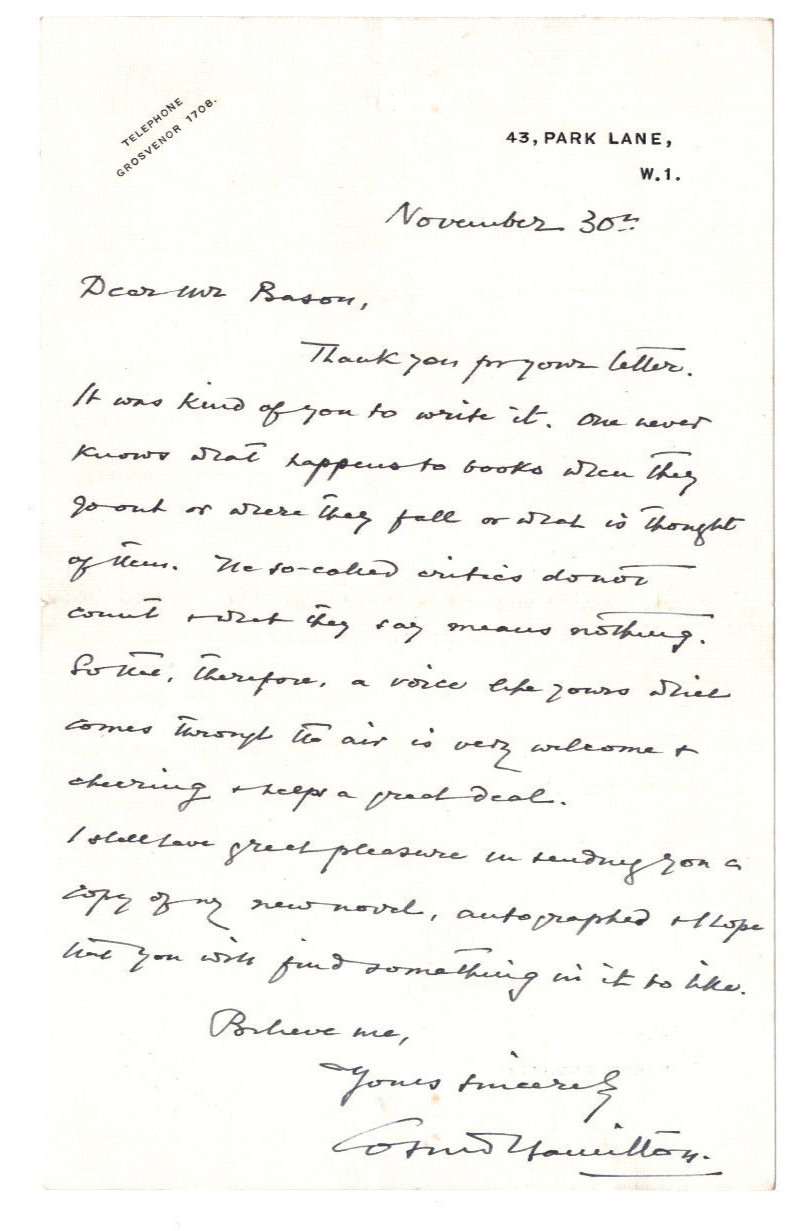 TELEPHONE
GROSVENOR 1708.
43, PARK LANE,
W.1.
November 30th
Dear Mr Bason,
Thank you for your letter.
It was kind of you to write it. One never
knows what happens to books when they
go out or where they fall or what is thought
of them. The so-called critics do not
count & what they say means nothing.
So that, therefore, a voice like yours which
comes through the air is very welcome &
cheering & helps a great deal.
I shall have great pleasure in sending you a
copy of my new novel, autographed & I hope
that you will find something in it to like.
Believe me,
Yours sincerely
Cosmo Hamilton.